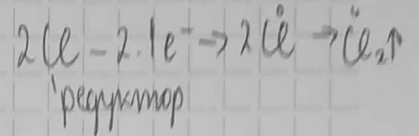 2Cl - 2.1e⁻ → 2Cl⁰ → Cl₂⁰↑
редуктор